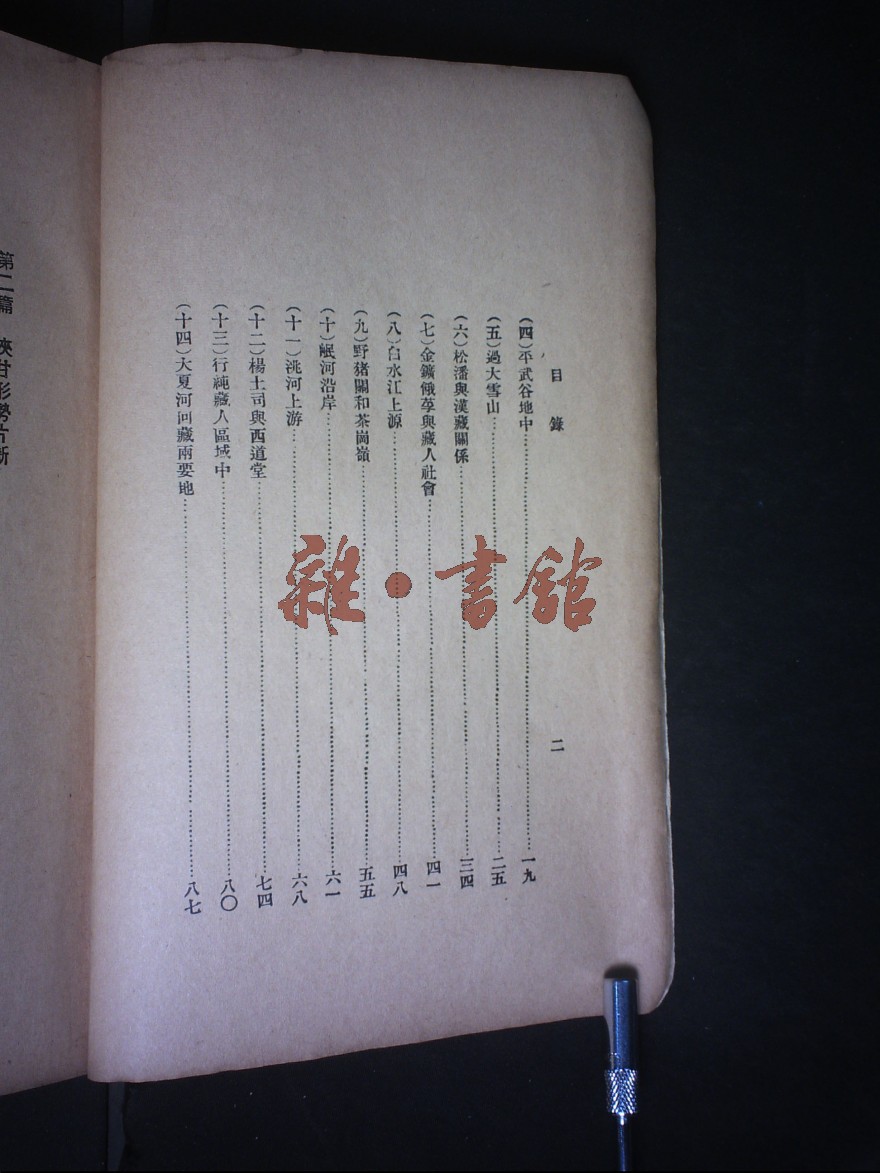 目錄 二
(四)平武谷地中……一九
(五)過大雪山……二五
(六)松潘與漢藏關係……三四
(七)金鑛俄孛與藏人社會……四一
(八)白水江上源……四八
(九)野猪關和茶崗嶺……五五
(十)岷河沿岸……六一
(十一)洮河上游……六八
(十二)楊土司與西道堂……七四
(十三)行純藏人區域中……八〇
(十四)大夏河回藏兩要地……八七
第二篇 陜甘形勢片斷
雜·書館